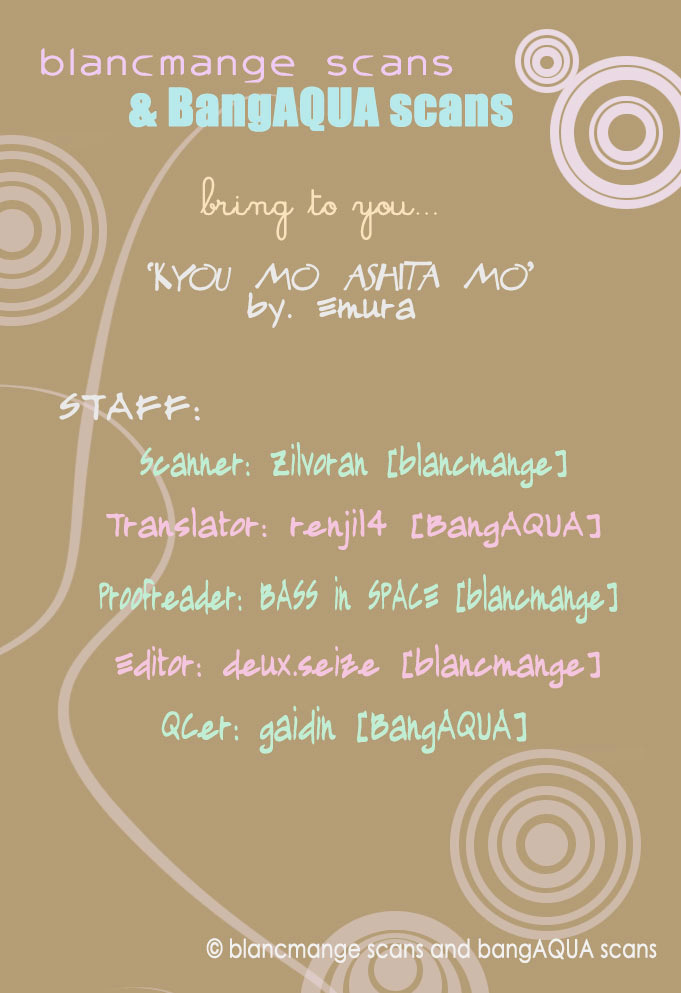 blancmange scans
& BangAQUA scans
bring to you...
'KYOU MO ASHITA MO'
by. Emura
STAFF:
Scanner: Zilvoran [blancmange]
Translator: renji14 [BangAQUA]
Proofreader: BASS in SPACE [blancmange]
Editor: deux.seize [blancmange]
QCer: gaidin [BangAQUA]
© blancmange scans and bangAQUA scans